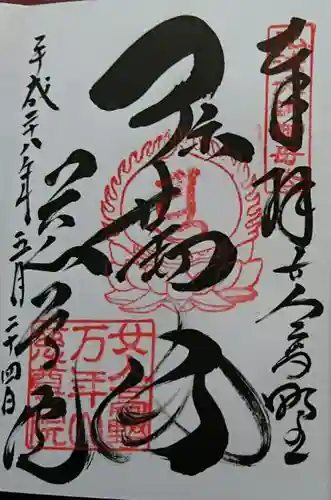 奉拝 女人高野山
弥勒佛
慈尊院
平成二十八年五月二十四日
女人高野
万年山
慈尊院